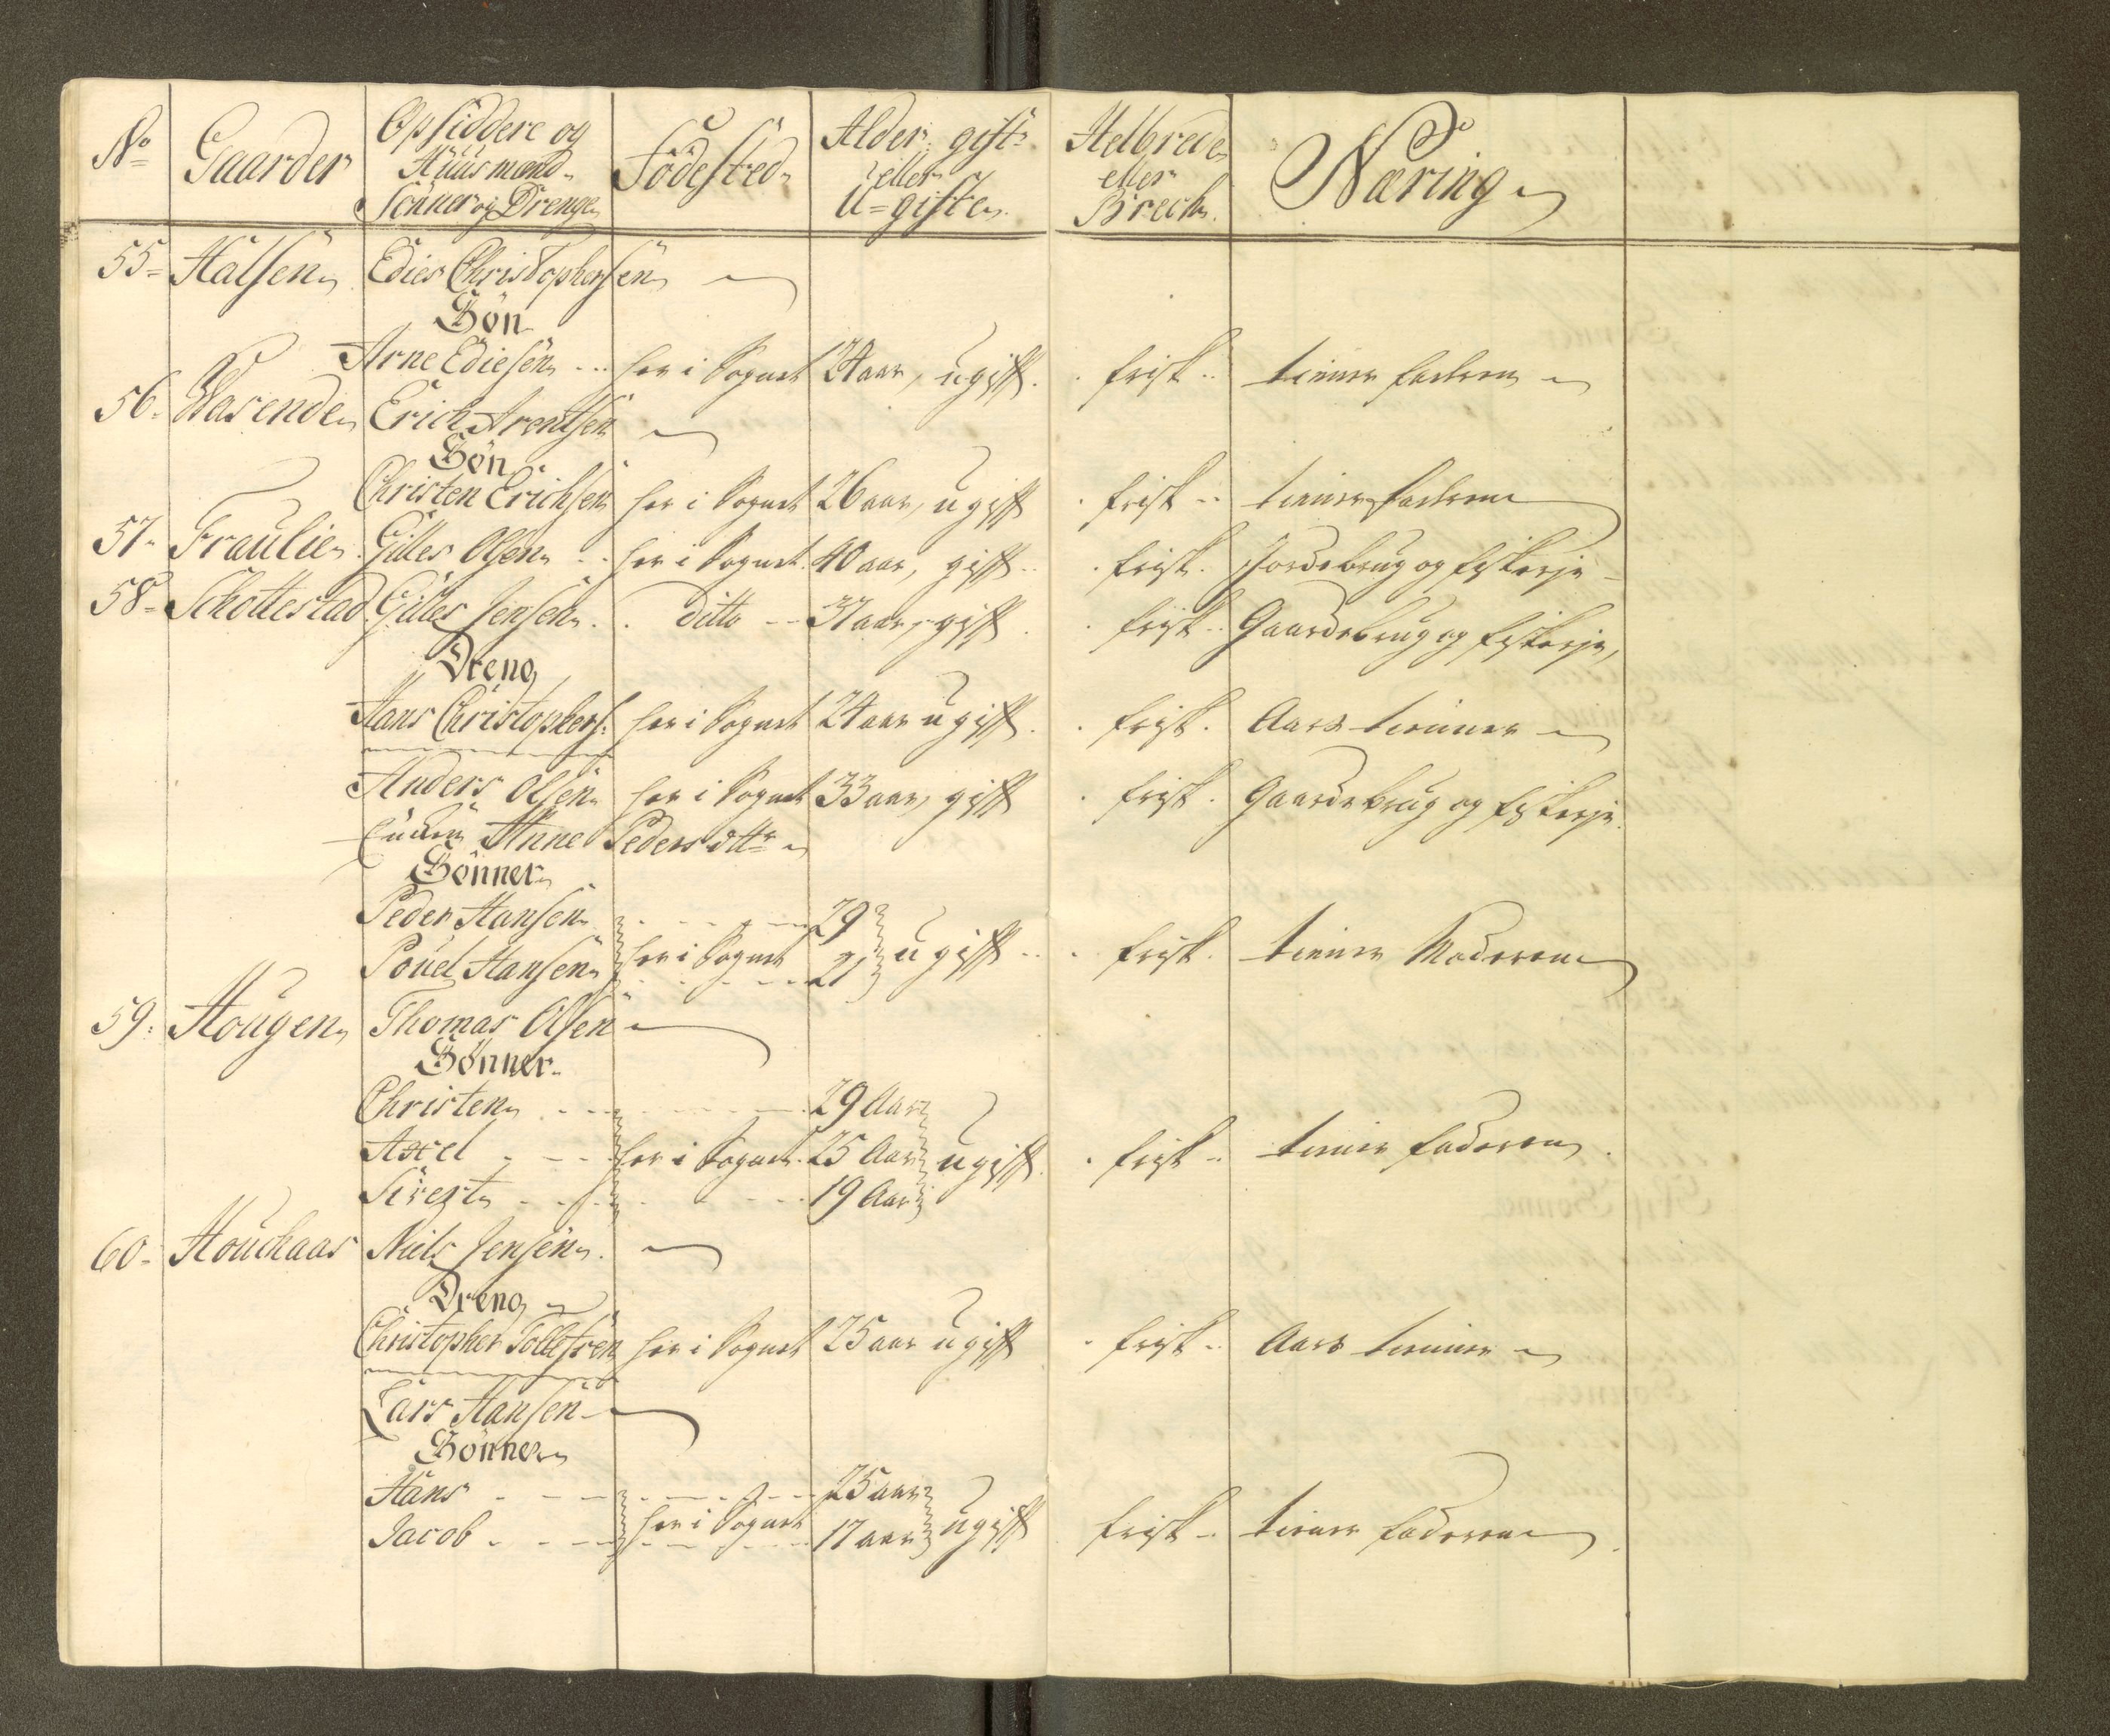 No Gaarder Opsiddere og Huusmænd Sönner og Drenge Födested Alder gift eller U=gift Helbrede eller Bræck Næring
55 Halsen Edies Christophersen
Sön
Arne Ediesen her i Sognet 24 aar, ugift frisk tiener faderen
56 Wasenden Erich Arentsen
Sön
Christen Erichsen her i Sognet 26 aar, ugift frisk tiener faderen
57 Fraulie Gilles Olsen her i Sognet 40 aar, gift frisk Jordebrug og fiskerje
58 Schottestad Gilles Jensen ditto 37 aar, gift frisk Gaardebrug og fiskerje,
Dreng
Hans Christophers: her i Sognet 24 aar ugift frisk Aars tienner
Anders Olsen her i Sognet 33 aar, gift frisk Gaardebrug og fiskerje
Anne Pedersdttr
Sönner
Peder Hansen 29
Pouel Hansen her i Sognet 21 ugift frisk tiener Moderen
59 Hougen Thomas Olsen
Sönner
Christen 29 Aar
Axel her i Sognet 25 Aar ugift frisk tiener faderen
Sivert 19 Aar
60 Houchaas Niels Jensen
Dreng
Christopher Tollefsen her i Sognet 25 aar ugift frisk Aars tienner
Lars Hansen
Sönner
Hans 25 aar
Jacob her i Sognet 17 aar ugift frisk tiener faderen